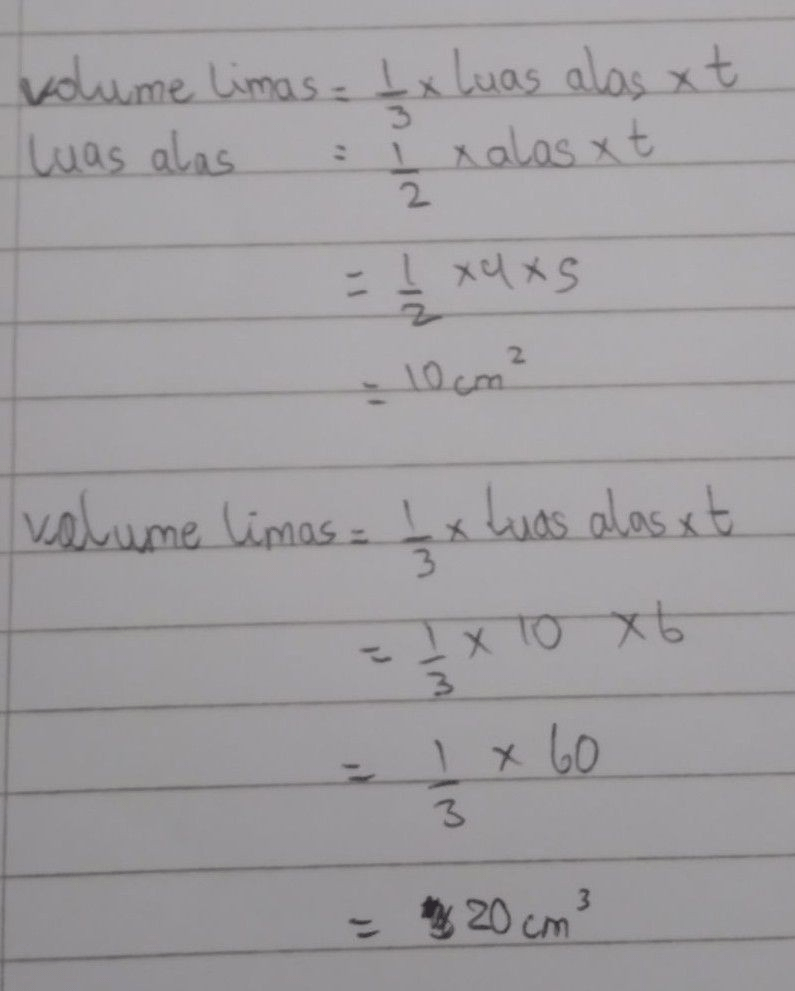 volume limas = 1/3 × luas alas × t
luas alas = 1/2 × alas × t
= 1/2 × 4 × 5
= 10 cm²
volume limas = 1/3 × luas alas × t
= 1/3 × 10 × 6
= 1/3 × 60
= 20 cm³